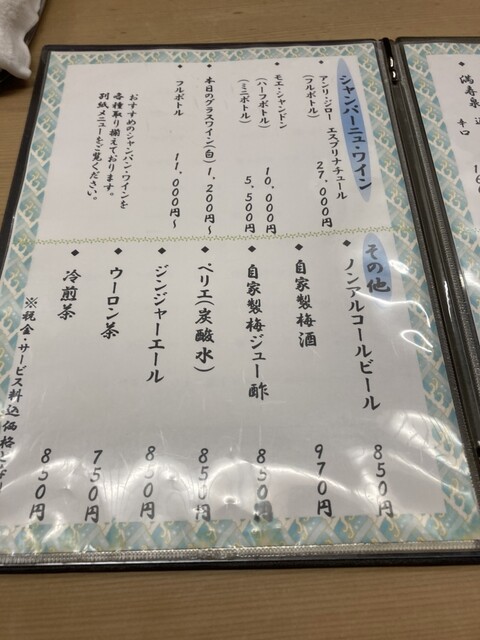 満寿泉
辛口
シャンパーニュ・ワイン
アンリ・ジロー エスプリナチュール
(フルボトル) 27,000円
モエ・シャンドン
(ハーフボトル) 10,000円
(ミニボトル) 5,500円
本日のグラスワイン(白) 1,200円~
フルボトル 11,000円~
おすすめのシャンパン・ワインを
各種取り揃えております。
別紙メニューをご覧ください。
その他
ノンアルコールビール 850円
自家製梅酒 970円
自家製梅ジュー酢 850円
ペリエ(炭酸水) 850円
ジンジャーエール 850円
ウーロン茶 750円
冷煎茶 850円
※税金・サービス料込価格